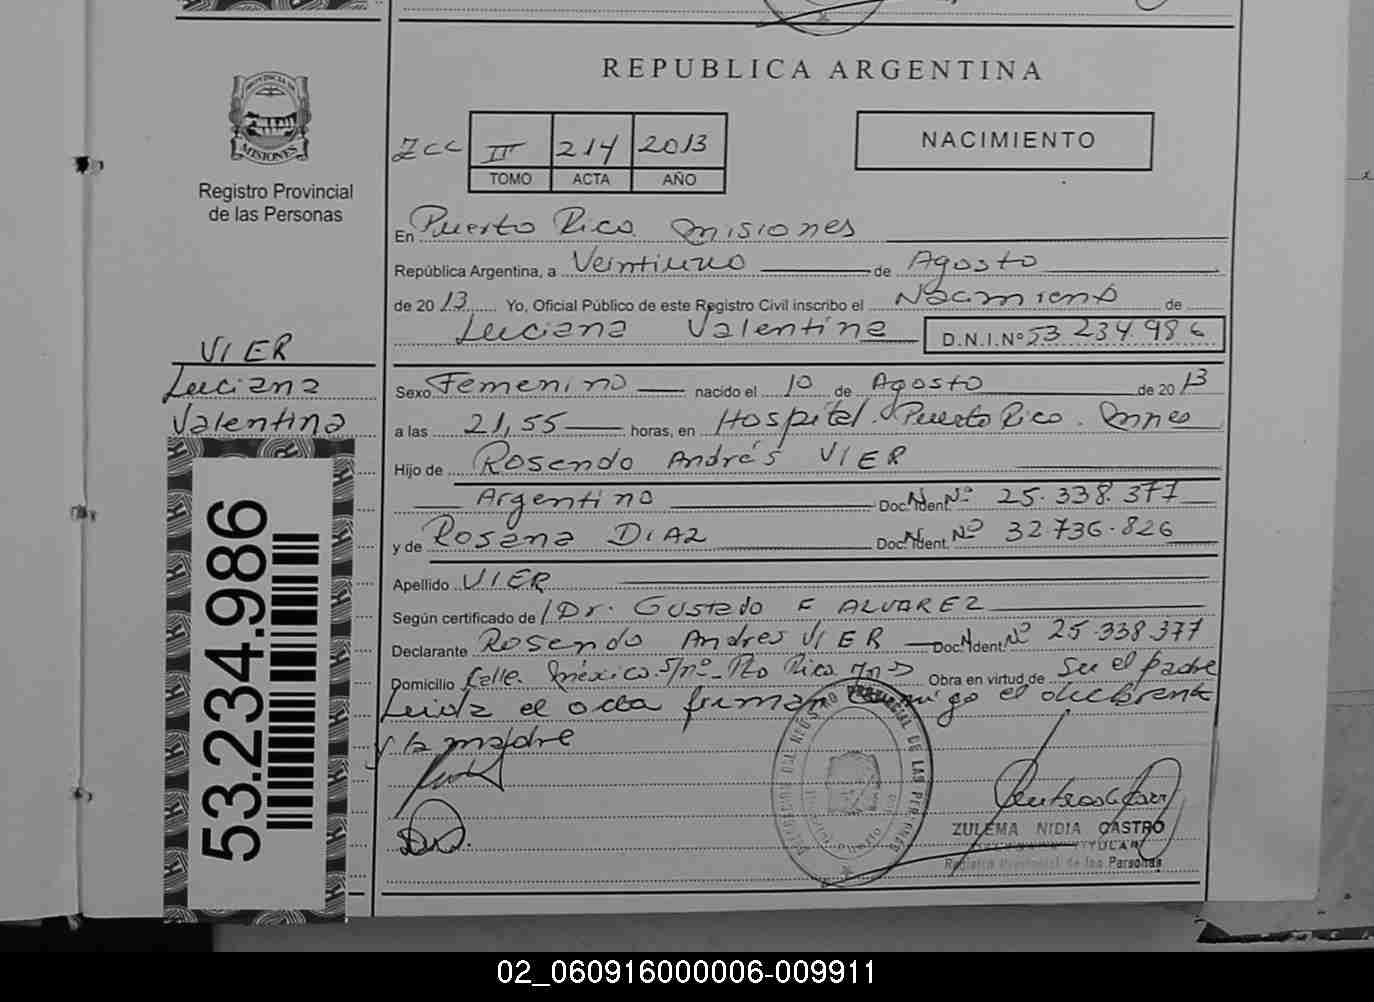 REPUBLICA ARGENTINA
PROVINCIA DE
MISIONES
Registro Provincial
de las Personas
III 214 2013
TOMO ACTA AÑO
NACIMIENTO
En Puerto Rico Misiones
República Argentina, a Veintiuno de Agosto
de 2013 Yo, Oficial Público de este Registro Civil inscribo el Nacimiento de
Luciana Valentina D.N.I.Nº 53 234 986
VIER
Luciana
Valentina
Sexo Femenino nacido el 10 de Agosto de 2013
a las 21,55 horas, en Hospital Puerto Rico. Mnes
Hijo de Rosendo Andrés VIER
Argentino Doc. Ident. Nº 25.338.377
y de Rosana DIAZ Doc. Ident. Nº 32.736.826
Apellido VIER
Según certificado de Dr. Gustavo F ALVAREZ
Declarante Rosendo Andres VIER Doc. Ident. Nº 25.338.377
Domicilio Calle México S/nº Pto Rico Mnes Obra en virtud de Su el padre
Leida el acta firman conmigo el declarante
y la madre
53.234.986
ZULEMA NIDIA CASTRO
TITULAR
Registro Provincial de las Personas
02_060916000006-009911